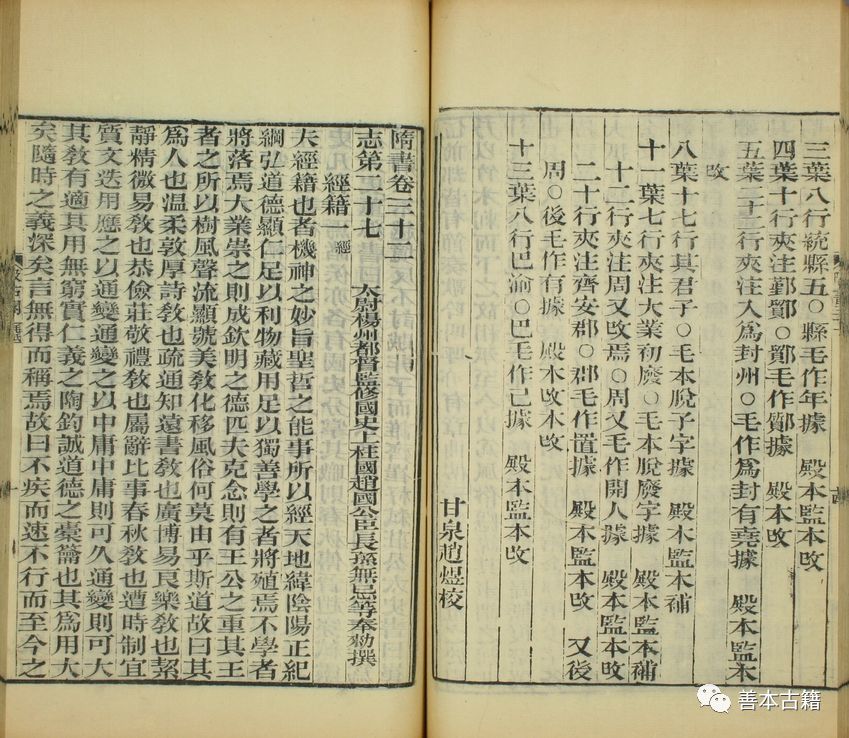 三葉八行統縣五○縣毛作年據 殿本監本改
四葉十行夾注鄞鄮○鄮毛作鄮據 殿本改
五葉二十二行夾注入爲封州○毛作爲封有堯據 殿本監本
改
八葉十七行其君子○毛本脫子字據 殿本監本補
十一葉七行夾注大業初廢○毛本脫廢字據 殿本監本補
十二行夾注周又改焉○周又毛作開人據 殿本監本改
二十行夾注齊安郡○郡毛作置據 殿本監本改 又後
周○後毛作有據 殿本改本改
十三葉八行巴渝○巴毛作已據 殿本監本改
甘泉趙煜校
隋書卷三十二
太尉楊州都督監修國史上柱國趙國公臣長孫無忌等奉勑撰
志第二十七
經籍一 經
夫經籍也者機神之妙旨聖哲之能事所以經天地緯陰陽正紀
綱弘道德顯仁足以利物藏用足以獨善學之者將殖焉不學者
將落焉大業崇之則成欽明之德匹夫克念則有王公之重其王
者之所以樹風聲流顯號美敎化移風俗何莫由乎斯道故曰其
爲人也温柔敦厚詩敎也疏通知遠書敎也廣博易良樂敎也絜
靜精微易敎也恭儉莊敬禮敎也屬辭比事春秋敎也遭時制宜
質文迭用應之以通變通變之以中庸中庸則可久通變則可大
其敎有適其用無窮實仁義之陶鈞誠道德之橐籥也其爲用大
矣隨時之義深矣言無得而稱焉故曰不疾而速不行而至今之
善本古籍